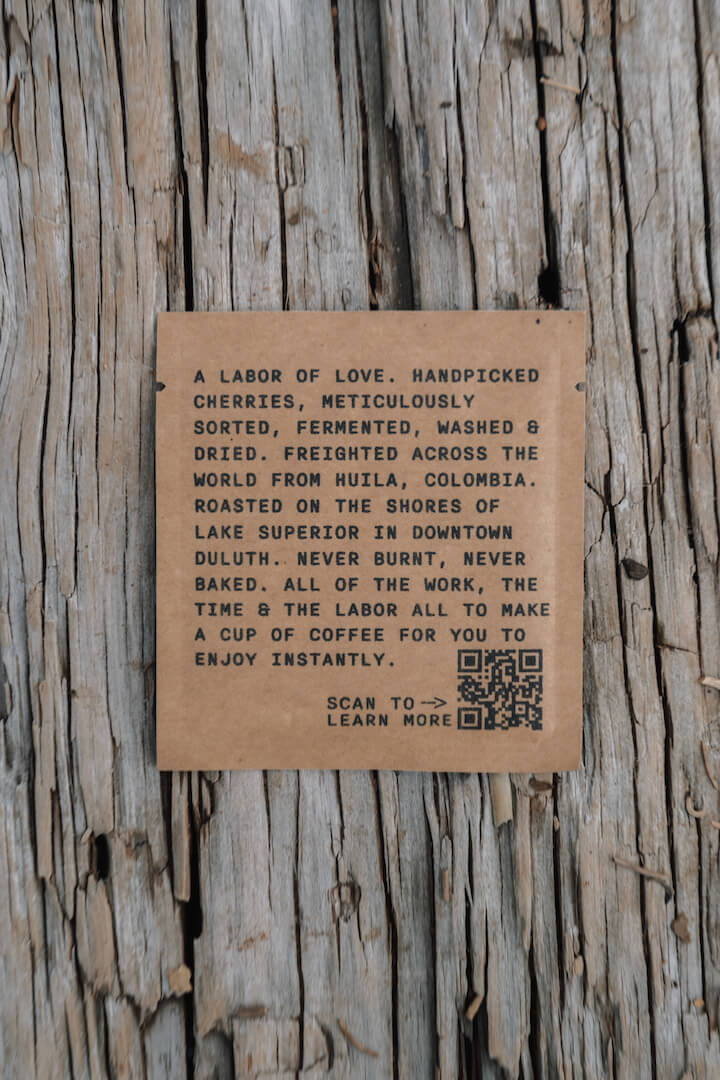 A LABOR OF LOVE. HANDPICKED
CHERRIES, METICULOUSLY
SORTED, FERMENTED, WASHED &
DRIED. FREIGHTED ACROSS THE
WORLD FROM HUILA, COLOMBIA.
ROASTED ON THE SHORES OF
LAKE SUPERIOR IN DOWNTOWN
DULUTH. NEVER BURNT, NEVER
BAKED. ALL OF THE WORK, THE
TIME & THE LABOR ALL TO MAKE
A CUP OF COFFEE FOR YOU TO
ENJOY INSTANTLY.
SCAN TO →
LEARN MORE